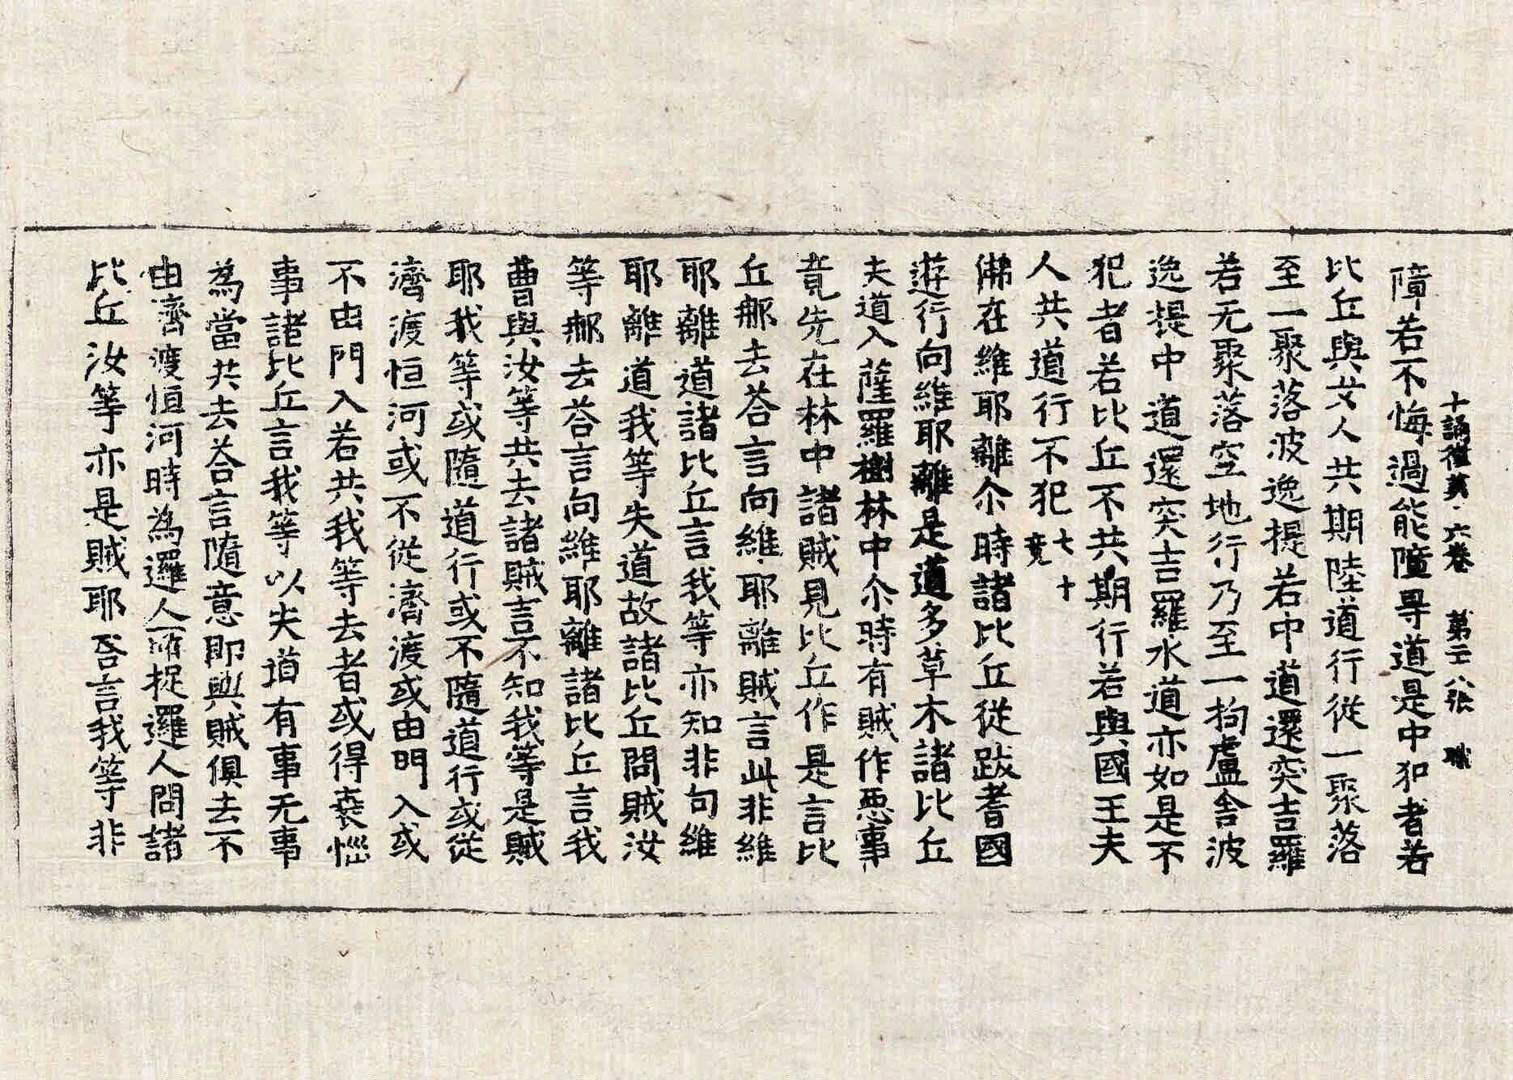 十誦律第六卷 第三八张 職
障若不悔過能障㝵道是中犯者若
比丘與女人共期陸道行從一聚落
至一聚落波逸提若中道還突吉羅
若无聚落空地行乃至一拘盧舍波
逸提中道還突吉羅水道亦如是不
犯者若比丘不共期行若與國王夫
人共道行不犯 七十竟
佛在維耶離尒時諸比丘從跋耆國
遊行向維耶離是道多草木諸比丘
失道入薩羅樹林中尒時有賊作惡事
竟先在林中諸賊見比丘作是言比
丘那去荅言向維耶離賊言此非維
耶離道諸比丘言我等亦知非向維
耶離道我等失道故諸比丘問賊汝
等那去荅言向維耶離諸比丘言我
曹與汝等共去諸賊言不知我等是賊
耶我等或隨道行或不隨道行或從
濟渡恒河或不從濟渡或由門入或
不由門入若共我等去者或得衰惱
事諸比丘言我等以失道有事无事
為當共去荅言隨意即與賊俱去不
由濟渡恒河時為邏人所捉邏人問諸
比丘汝等亦是賊耶荅言我等非